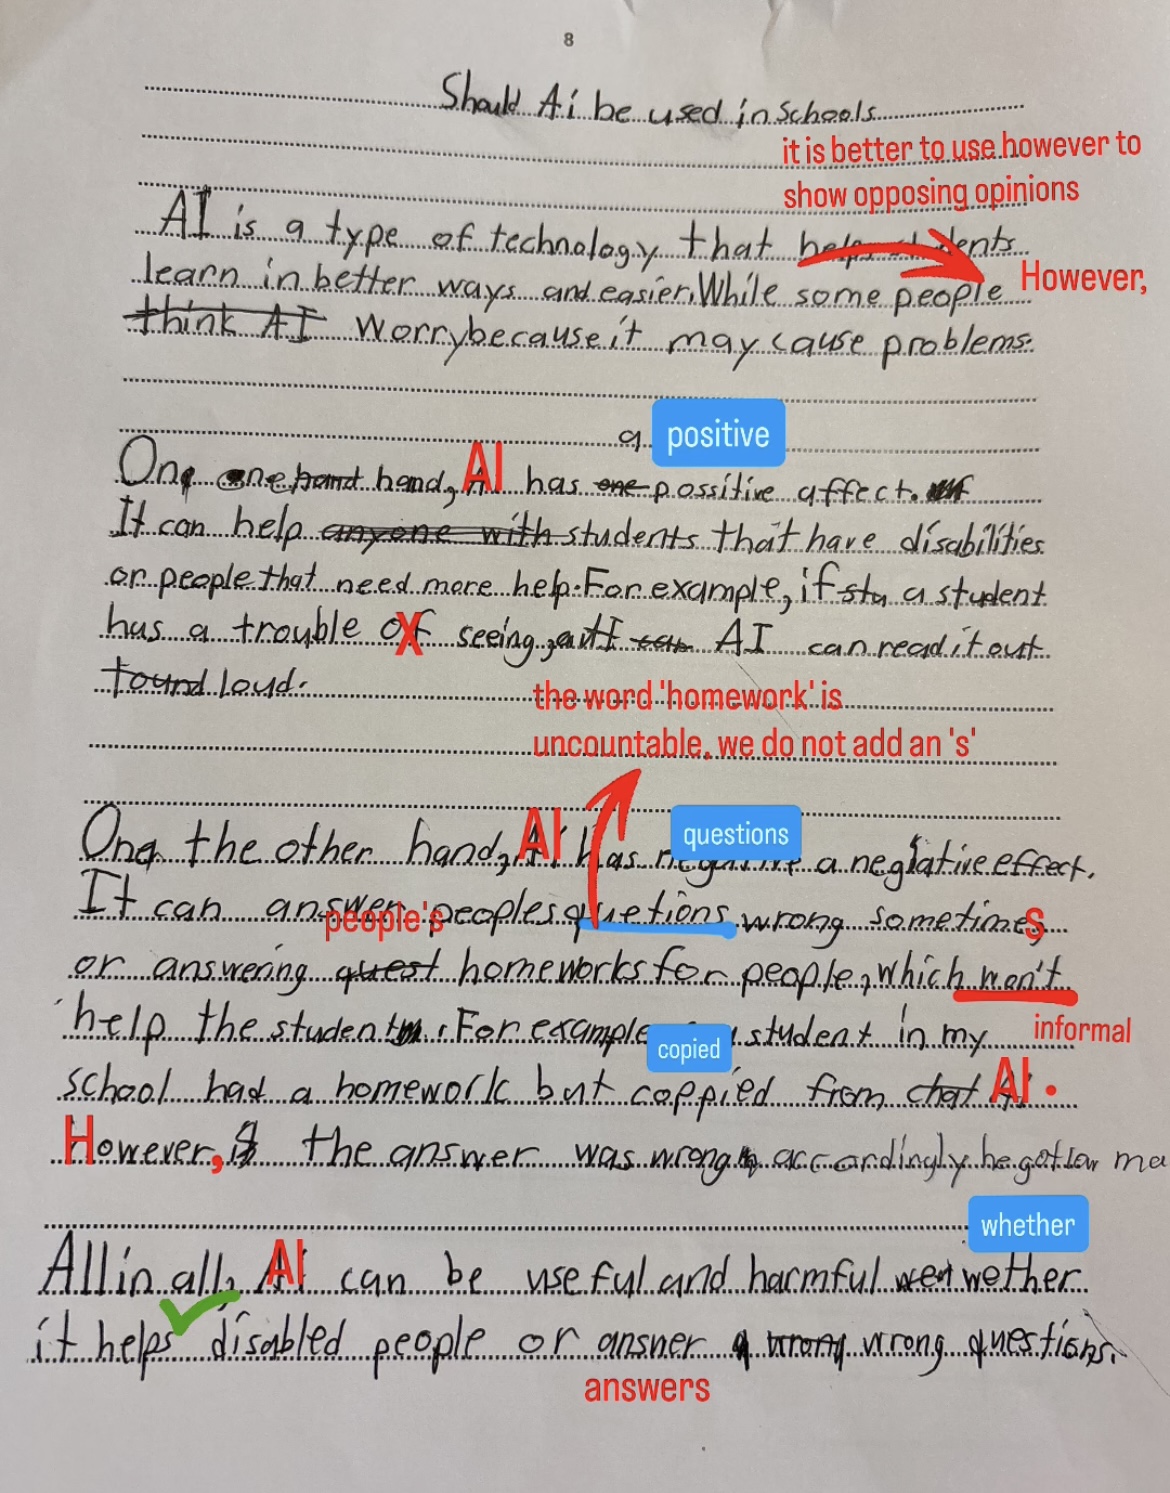 8
Should Ai be used in Schools
it is better to use however to
show opposing opinions
AI is a type of technology that helps students
learn in better ways and easier. While some people However,
think AI worry because it may cause problems.
a positive
One one hand hand, AI has one possitive affect.
It can help anyone with students that have disabilities
or people that need more help. For example, if stu a student
has a trouble of X seeing, AI can read it out
found loud.
the word 'homework' is
uncountable, we do not add an 's'
questions
One the other hand, AI has negative a negiative effect.
It can answer peoples quetions wrong sometimes
people's
or answering quest homeworks for people, which won't
help the student. For example student in my informal
copied
school had a homework but coppied from chat AI.
However, the answer was wrong accordingly he got low ma
whether
All in all, AI can be useful and harmful wether
it helps disabled people or ansner wrong wrong questions.
answers